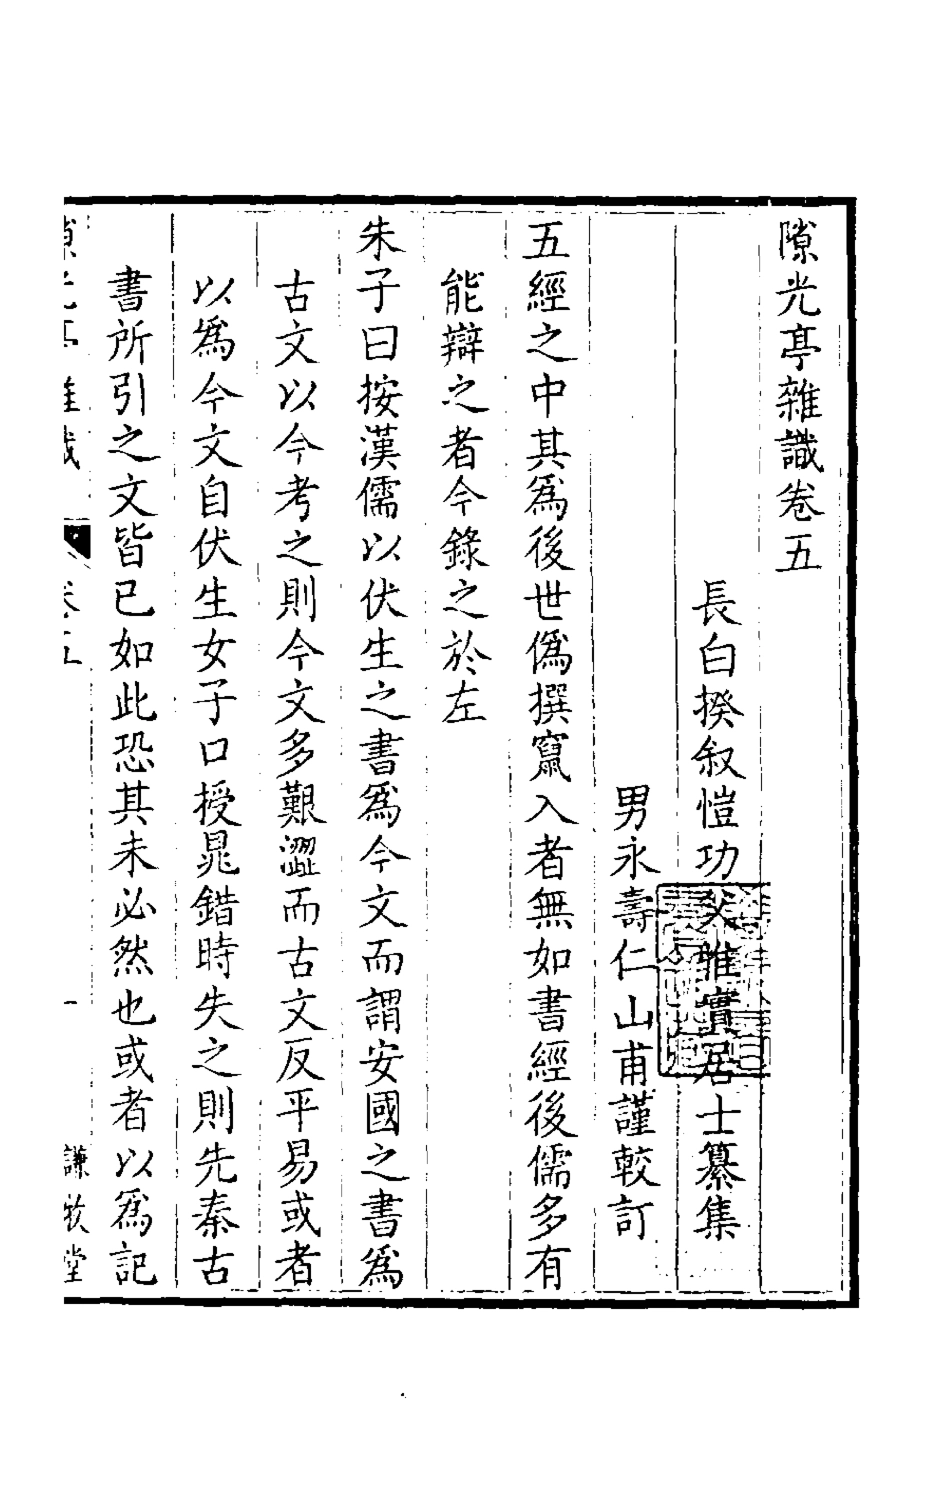 隙光亭雜識卷五
長白揆叙愷功父惟實居士纂集
男永壽仁山甫謹較訂
五經之中其爲後世僞撰竄入者無如書經後儒多有
能辯之者今錄之於左
朱子曰按漢儒以伏生之書爲今文而謂安國之書爲
古文以今考之則今文多艱澀而古文反平易或者
以爲今文自伏生女子口授晁錯時失之則先秦古
書所引之文皆已如此恐其未必然也或者以爲記
隙光亭雜識 卷五 一 謙牧堂